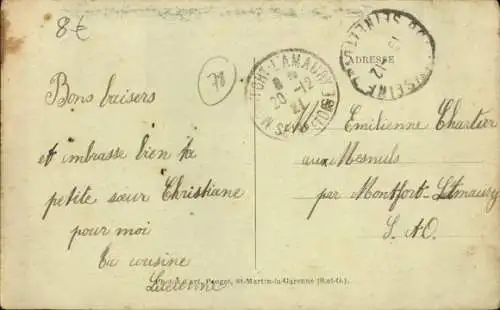 8€
Bons baisers
et embrasse bien ta
petite sœur Christiane
pour moi
ta cousine
Lucienne
MONTFORT-L'AMAURY
20 -12
ADRESSE
Emilienne Chartier
aux Mesnuls
par Montfort-Lamaury
S. &O.
St-Martin-la-Garenne (S.-et-O.)